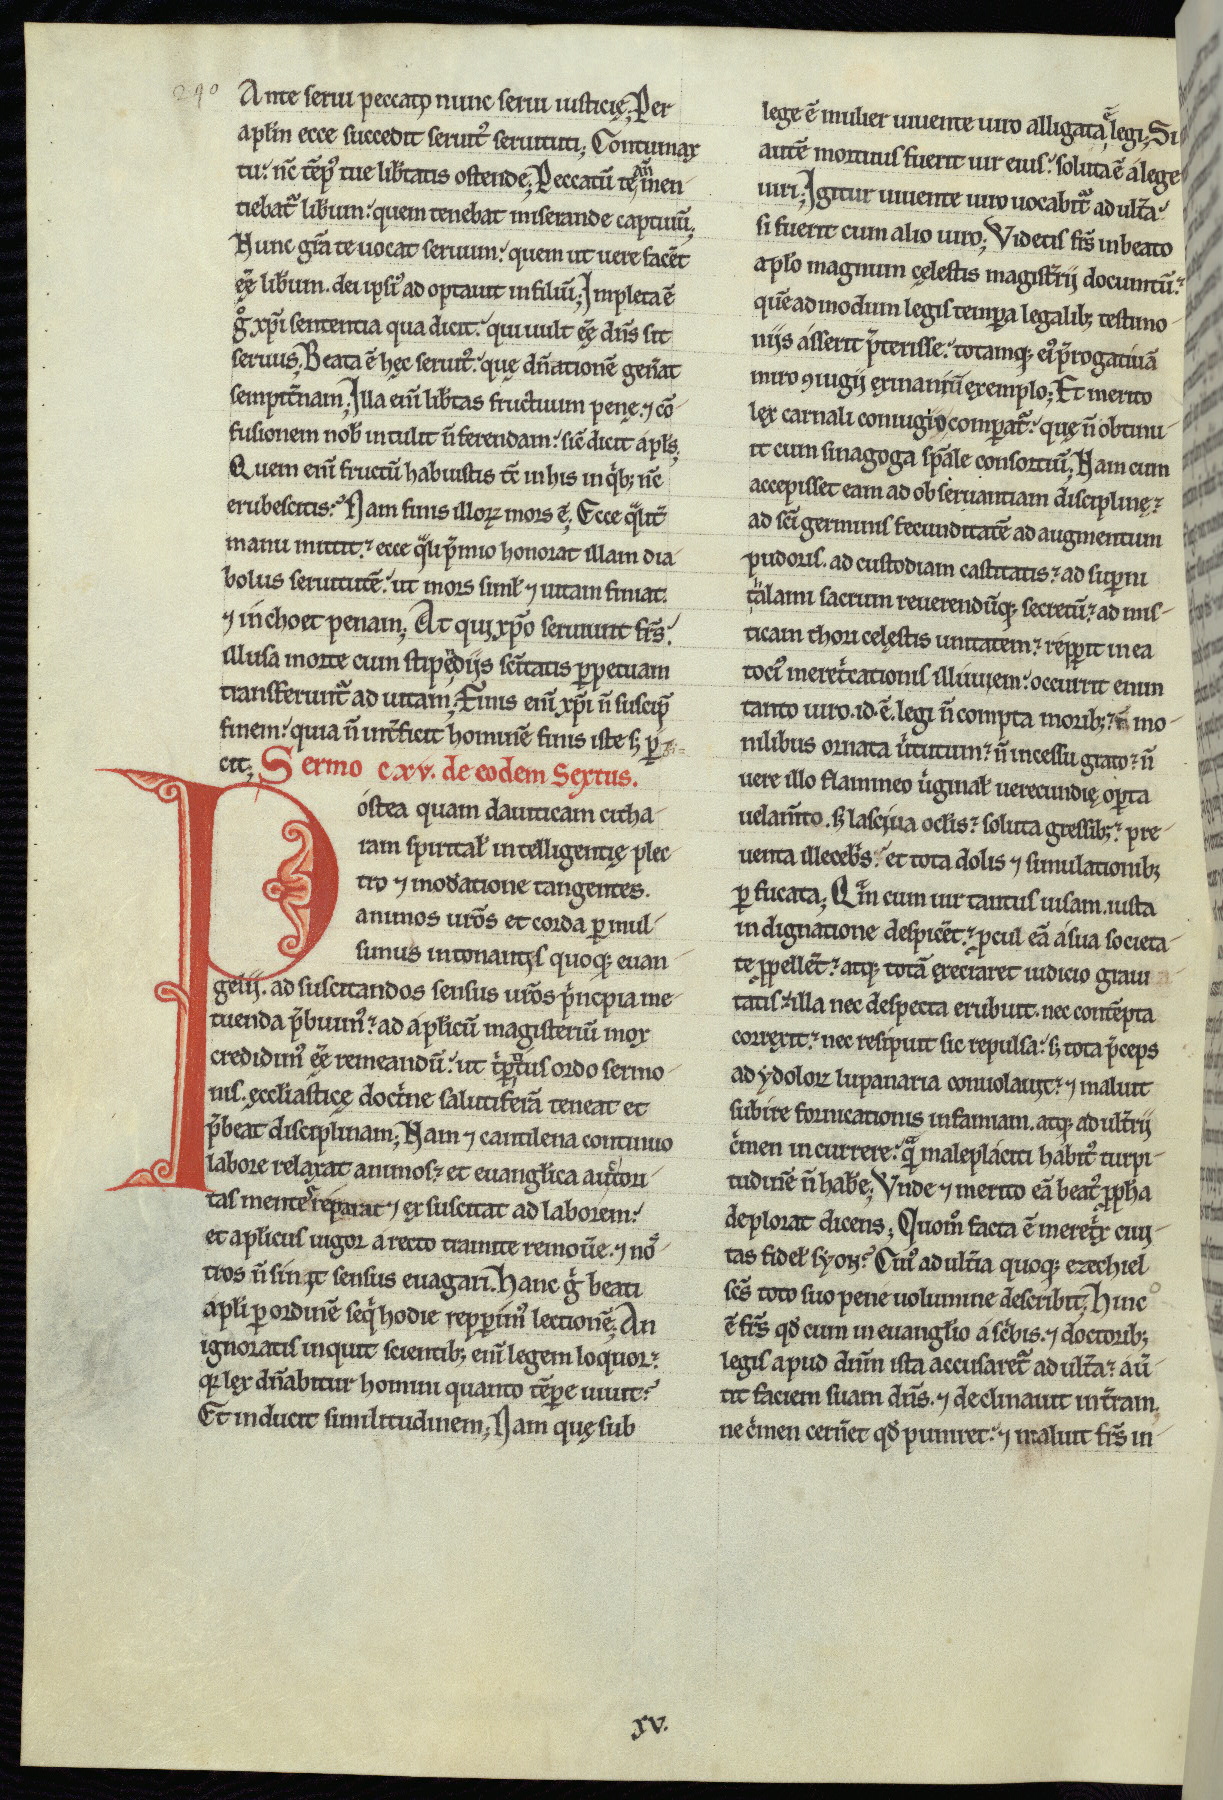 290
Ante serui peccato nunc serui iusticię; Per
aplm̄ ecce succedit seruit᷒ seruituti; Contumax
tu: nc̄ tēp᷒ tue lib̄tatis ostende; Peccatū te añ men
tiebat᷑ lib̄um: quem tenebat miserande captiuū;
Hunc gr̄a te uocat seruum: quem ut uere facet̄
eę̄ lib̄um. dei ipsi᷒ ad optauit in filiū; Impleta ē
g̊ xp̄i sententia qua dicit: qui uult eę̄ dn̄s sit
seruus; Beata ē hęc seruit᷒: quę dn̄ationē gen̄at
sempit̄nam; Illa eni̅ lib̄tas fructuum penę. ⁊ cō
fusionem nob̄ intulit n̄ ferendam: sic̄ dicit apl̄s;
Quem eni̅ fructū habuistis tc̄ in his in qͥb; nc̄
erubescitis: Nam finis illoꝝ mors ē; Ecce qͣlit̄
manu mittit: ecce qͣli p̄mio honorat illam dia
bolus seruitutē: ut mors simł ⁊ uitam finiat.
⁊ inchoet penam; At qui xp̄o seruiunt fr̄s:
illusa morte cum stipēdijs sc̄itatis ꝑpetuam
transferunt᷑ ad uitam; Finis eni̅ xp̄i n̄ suscip̄
finem: quia n̄ int̄ficit hominē finis iste sꝫ ꝑfi-
cit; Sermo cxv. de eodem Sextus.
Postea quam dauiticam citha-
ram spiritał intelligentię plec-
tro ⁊ modatione tangentes.
animos ur̄os et corda ꝑmul-
simus intonantis quoqꝫ euan-
gelij. ad suscitandos sensus ur̄os p̄ncpia me-
tuenda p̄buim᷒: ad aplicū magisteriū mox
credidim᷒ eę̄ remeandū: ut tͥptitus ordo sermo-
nis. ęccliasticę doctͥne salutiferā teneat et
p̄beat disciplinam; Nam ⁊ cantilena continuo
labore relaxat animos: et euanglica auctori
tas mentē reparat ⁊ ex suscitat ad laborem:
et aplicus uigor a recto tramite remoūe. ⁊ nō-
tros n̄ sinit sensus euagari. Hanc g̊ beati
apli ꝑ ordinē seqͥ hodie repperim᷒ lectionē; An
ignoratis inquit scientibꝫ eni̅ legem loquor:
qꝛ lex dn̄abitur homini quanto tēpe uiuit:
Et inducit similitudinem; Nam quę sub
lege ē mulier uiuente uiro alligata ē legi; Si
autē mortuus fuerit uir eius: soluta ē a lege
uiri; Igitur uiuente uiro uocabit᷑ adult̄a:
si fuerit cum alio uiro; Videtis fr̄s in beato
aplo magnum cęlestis magistͥrij documtū:
quēadmodum legis tempa legalibꝫ testimo-
nijs asserit p̄terisse: totamqꝫ ei᷒ p̄rogatiuā
miro ꝯiugij exinanitū exemplo; Et merito
lex carnali coniugio compat᷑: quę n̄ obtinu-
it cum sinagoga sp̄ale consortiū; Nam cum
accepisset eam ad obseruantiam disciplinę:
ad sc̄i germinis fecunditatē ad augmentum
pudoris. ad custodiam castitatis: ad superni
tͣlami sacrum reuerendūqꝫ secretū: ad mis-
ticam thori cęlestis unitatem: repperit in ea
toci᷒ meretͥcationis illuuiem: occurrit enim
tanto uiro. id. ē. legi n̄ compta moribꝫ: n̄ mo-
nilibus ornata uͥtutum: n̄ incessu grato: n̄
uere illo flammeo uͥginał uerecundię opta
uelam̄to. sꝫ lasciua oclis: soluta gressibꝫ: pre-
uenta illeceb̄s: et tota dolis ⁊ simulationibꝫ
ꝑfucata; Qͣm cum uir tantus uisam. iusta
indignatione despicet̄: ꝓcul eā a sua societa-
te ꝓpellet̄: atqꝫ totā execiaret iudicio graui
tatis: illa nec despecta erubuit. nec contēpta
correxit: nec resipuit sic repulsa: sꝫ tota p̄ceps
ad ydoloꝝ lupanaria conuolauit: ⁊ maluit
subire fornicationis infamiam. atqꝫ adult̄rij
cͥmen incurrere: qͣ maleplaciti habit᷒ turpi-
tudinē n̄ habe̅; Vnde ⁊ merito eā beat᷒ ꝓpħa
deplorat dicens; Quom̊ facta ē meretͥx ciui-
tas fideł syon: Cui᷒ adult̄ia quoqꝫ ezechiel
sc̄s toto suo pene uolumine describit; Hinc
ē fr̄s qđ cum in euanglio a scͥbis. ⁊ doctoribꝫ
legis apud dnm̄ ista accusaret᷑ adult̄a: au̅-
tit faciem suam dn̄s. ⁊ declinauit in t̄ram.
ne cͥmen cern̄et qđ puniret: ⁊ maluit fr̄s in-
xv.